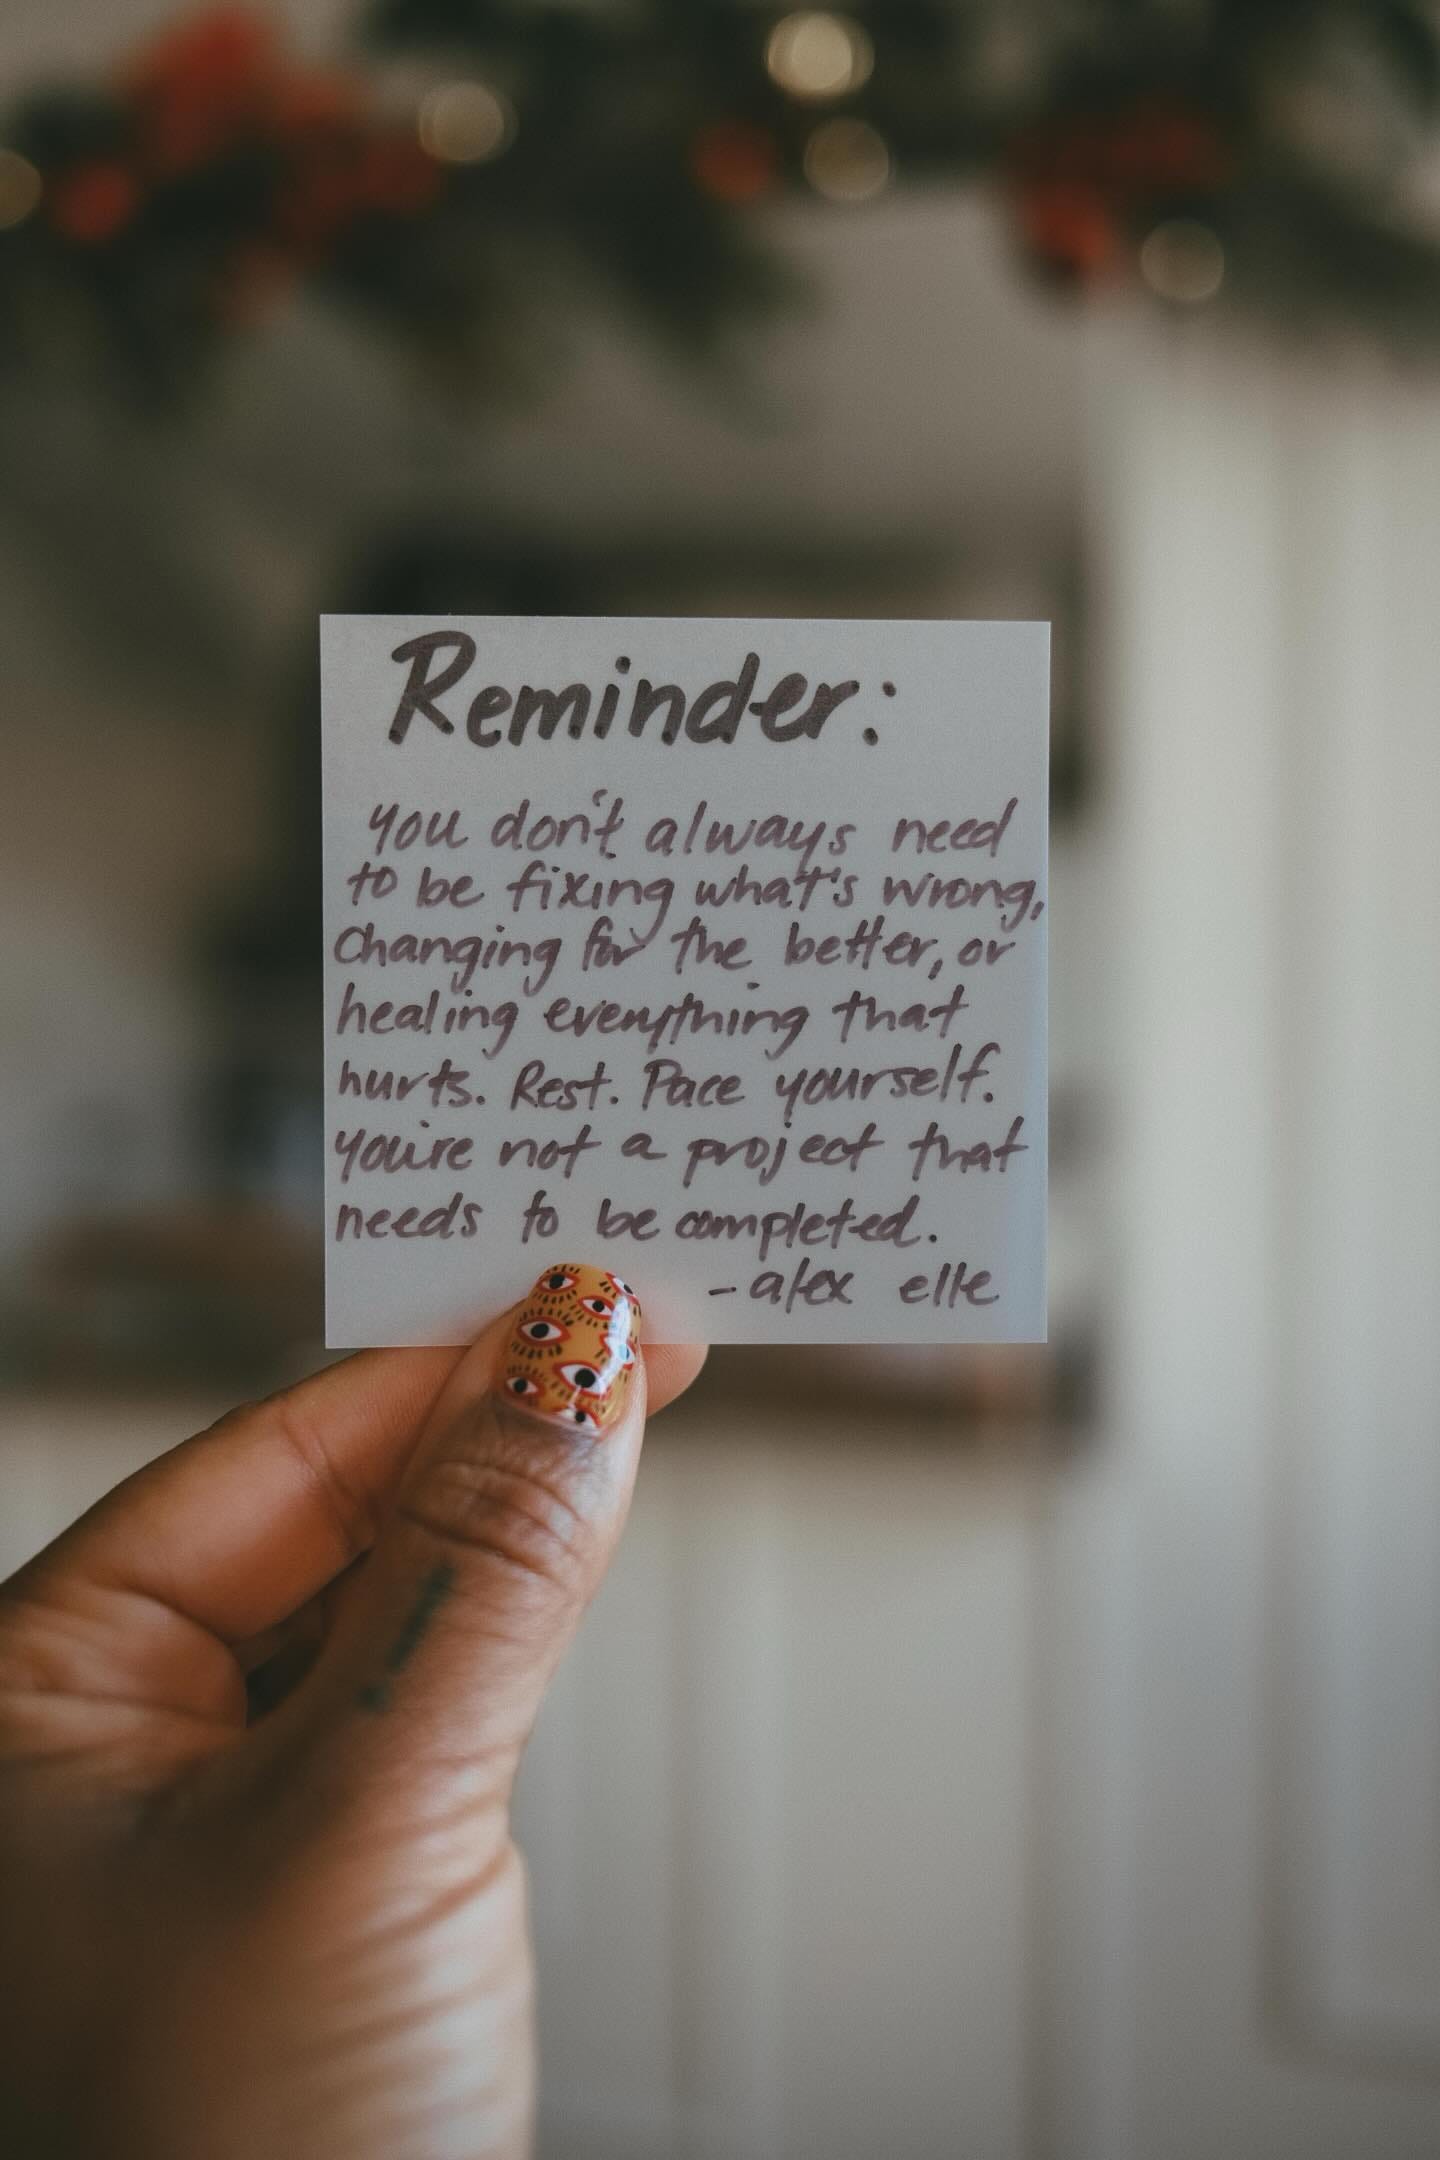 Reminder:
You don't always need
to be fixing what's wrong,
Changing for the better, or
healing everything that
hurts. Rest. Pace yourself.
You're not a project that
needs to be completed.
- alex elle